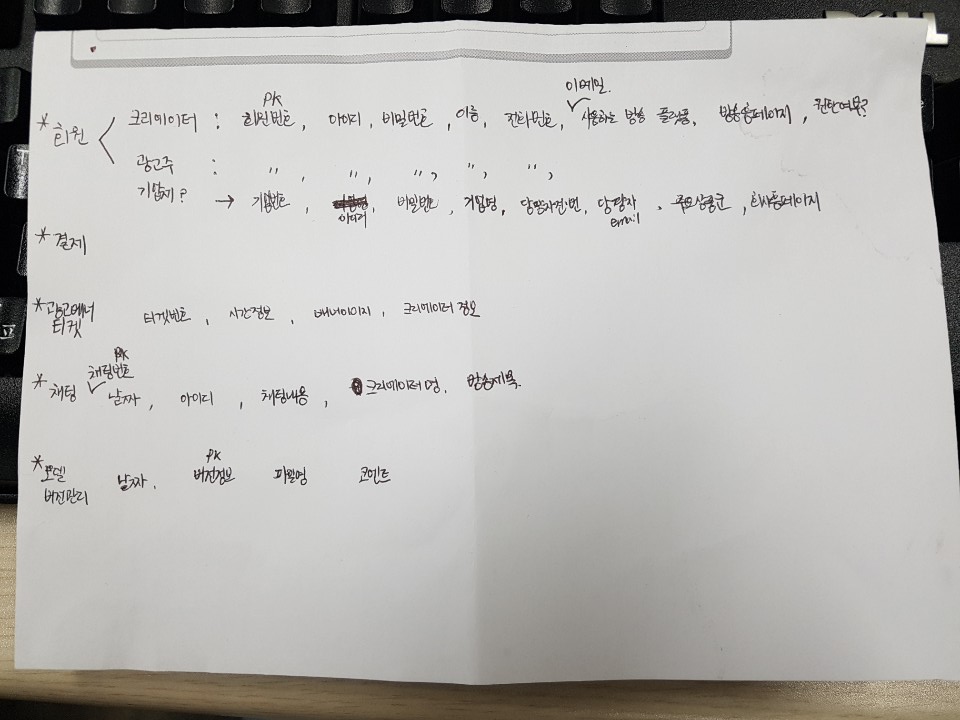 이메일.
PK
* 회원 크리에이터 : 회원번호, 아이디, 비밀번호, 이름, 전화번호, ✓ 사용하는 방송 플랫폼, 방송홈페이지,
광고주 : 〃, 〃, 〃, 〃, 〃,
기업체? → 기업번호, 아이디, 비밀번호, 기업명, 담당자전·번, 담당자 email, 주요상품군, 회사홈페이지
* 결제
* 광고배너 티켓 티켓번호, 시간정보, 배너이미지, 크리에이터 정보
PK
채팅번호
* 채팅 ✓ 날짜, 아이디, 채팅내용, 크리에이터명, 방송제목.
PK
* 모델 버전관리 날짜, 버전정보 파일명 코멘트